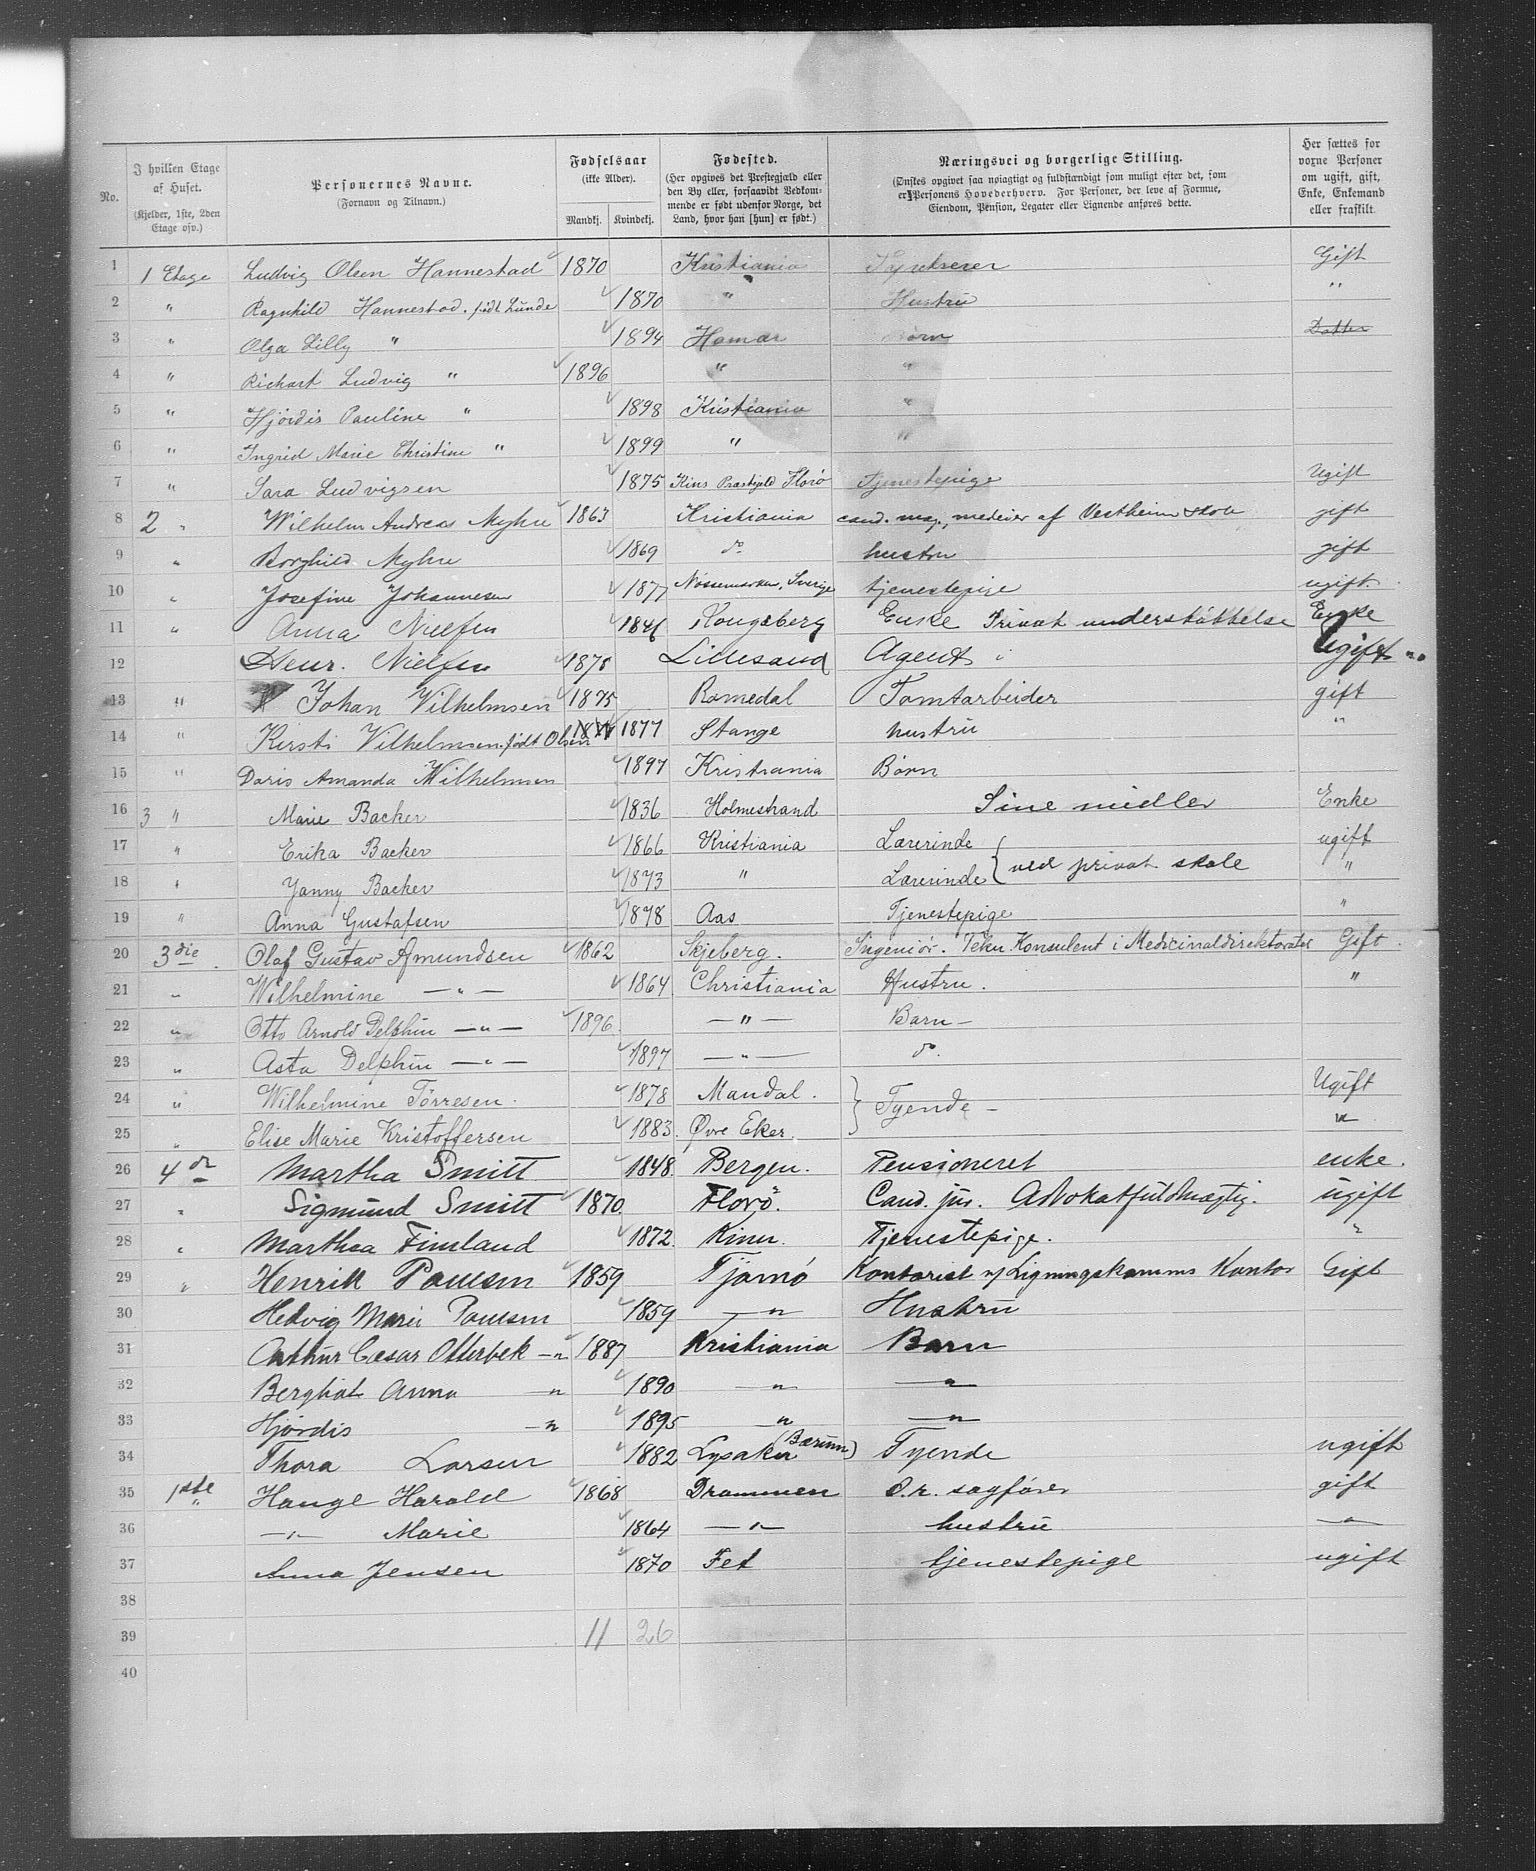 No.
I hvilken Etage af Huset. (Kjelder, 1ste, 2den Etage osv.)
Personernes Navne. (Fornavn og Tilnavn.)
Fødselsaar (ikke Alder). Mandkj. Kvindekj.
Fødested. (Her opgives det Præstegjæld eller den By eller, forsaavidt Vedkommende er født udenfor Norge, det Land, hvor han [hun] er født.)
Næringsvei og borgerlige Stilling. (Ønskes opgivet saa nøiagtigt og fuldstændigt som muligt efter det, som er Personens Hovederhverv. For Personer, der leve af Formue, Eiendom, Pension, Legater eller Lignende anføres dette.
Her sættes for voxne Personer om ugift, gift, Enke, Enkemand eller fraskilt.
1 1 Etage Ludvig Olsen Hannestad 1870 Kristiania Gift
2 " Ragnhild Hannestad. født Lunde 1870 " Hustru "
3 " Olga Lilly " 1894 Hamar Børn Datter
4 " Richart Ludvig " 1896 " "
5 " Hjørdis Pauline " 1898 Kristiania "
6 " Ingrid Marie Christine " 1899 " "
7 " Sara Ludvigsen 1875 Kins Præstgjeld Florø Tjenestepige Ugift
8 2 " Wilhelm Andreas Myhre 1863 Kristiania cand. mag., medeier af Vestheim skole gift
9 " Borghild Myhre 1869 do hustru gift
10 " Josefine Johannesen 1877 Nossemarken, Sverige tjenestepige ugift.
11 " Anna Nielsen 1846 Kongsberg Enke Privat understøttelse Enke
12 Henr. Nielsen 1875 Lillesand Agent Ugift
13 " Johan Vilhelmsen 1875 Romedal Tomtarbeider gift
14 " Kirsti Vilhelmsen født Olsen 1877 Stange hustru "
15 " Doris Amanda Wilhelmsen 1897 Kristiania Børn
16 3 " Marie Backer 1836 Holmestrand Sine midler Enke
17 " Erika Backer 1866 Kristiania Lærerinde ugift
18 " Yanny Backer 1873 " Lærerinde } ved privat skole "
19 " Anna Gustafsen 1878 Aas Tjenestepige "
20 3die Olaf Gustav Amundsen 1862 Skjeberg. Ingeniør. Tekn. Konsulent i Medicinaldirektoratet Gift.
21 " Wilhelmine — " — 1864 Christiania Hustru. "
22 " Otto Arnold Delphin — " — 1896 — " — Barn —
23 " Asta Delphin — " — 1897 — " — do.
24 " Wilhelmine Tørresen. 1878 Mandal. } Tyende — Ugift
25 " Elise Marie Kristoffersen 1883. Øvre Eker. "
26 4de Martha Smitt 1848 Bergen. Pensioneret enke.
27 " Sigmund Smitt 1870 Florø. Cand. jur. Advokatfuldmægtig. ugift
28 " Marthea Fimland 1872. Kinn. Tjenestepige. "
29 " Henrik Paulsen 1859 Tjømø Kontorist v/ Ligningskomms Kontor Gift
30 Hedvig Marie Paulsen 1859 — " Hustru
31 Arthur Cæsar Otterbek — " 1887 Kristiania Barn
32 Berghot Anna — " 1890 — " — — " —
33 Hjørdis — " 1895 — " — " —
34 Thora Larsen 1882 Lysaker (Bærum) Tyende ugift
35 1ste " Hauge Harald 1868 Drammen O.r. sagfører gift
36 — " — Marie 1864 — " — hustru — " —
37 Anna Jensen 1870 Fet tjenestepige ugift
38
39 11 26
40